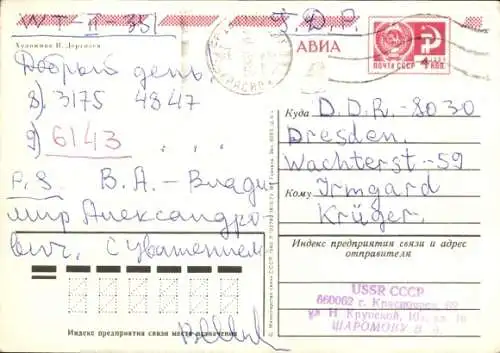 WT-II-351
Г.Д.Р.
Художник И. Дергилев
АВИА
ПОЧТА СССР 4 КОП.
Добрый день
8) 3175 4847
9) 6143
P.S. В.А.-Влади
мир Александро-
вич. С уважением
Куда D.D.R.-8030
Dresden.
Wachterst-59
Кому Irmgard
Krüger.
Индекс предприятия связи и адрес
отправителя
USSR СССР
660062 г. Красноярск
ул Н Крупской,
ШАРОМОВУ В. А.
Индекс предприятия связи места назначения